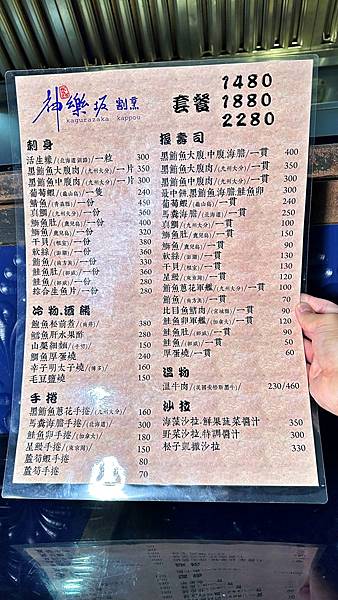 神樂坂 割烹
kagurazaka kappou
套餐
1480
1880
2280
刺身
活生蠔/(北海道釧路)/一粒 300
黑鮪魚大腹肉/(九州大分)/一片 350
黑鮪魚中腹肉/(九州大分)/一片 300
葡萄蝦/(龜山島)/一隻 240
鯖魚/(青森縣)/一份 450
真鯛/(九州大分)/一份 360
鰤魚肚/(鹿兒島)/一份 360
鰤魚/(鹿兒島)/一份 320
干貝/(根室)/一份 330
軟絲/(澎湖)/一份 360
鮪魚/(南方澳)/一份 330
鮭魚肚/(挪威)/一份 360
鮭魚/(挪威)/一份 280
綜合生魚片/一份 280
冷物.酒餚
鮑魚松前煮/ 380
鱈魚肝水果醋 280
山藥細麵/(手切) 150
鯛魚厚蛋燒 240
辛子明太子燒/(博多) 160
毛豆鹽燒 150
手捲
黑鮪魚蔥花手捲/(九州大分) 160
馬糞海膽手捲/(北海道) 300
鮭魚卵手捲/(加拿大) 180
星鰻手捲/(東京灣) 150
蘆筍蝦手捲 80
蘆筍手捲 70
握壽司
黑鮪魚大腹.中腹.海膽/一貫 400
黑鮪魚大腹肉/(九州大分)/一貫 350
黑鮪魚中腹肉/(九州大分)/一貫 300
最中餅.黑鮪魚.海膽.鮭魚卵 300
葡萄蝦/(龜山島)/一貫 240
馬糞海膽/(北海道)/一貫 250
真鯛/(九州大分)/一貫 110
鰤魚肚/(鹿兒島)/一貫 110
鰤魚/(鹿兒島)/一貫 90
軟絲/(澎湖)/一貫 130
干貝/(根室)/一貫 130
星鰻/(東京灣)/一貫 100
黑鮪魚蔥花軍艦/(九州大分)/一貫 100
鮪魚/(南方澳)/一貫 70
比目魚鰭肉/(宮城縣)/一貫 90
鮭魚卵軍艦/(加拿大)/一貫 120
鮭魚肚/(挪威)/一貫 110
鮭魚/(挪威)/一貫 50
厚蛋燒/一貫 60
溫物
溫牛肉/(美國安格斯黑牛) 230/460
沙拉
海藻沙拉.鮮果蔬菜醬汁 350
野菜沙拉.特調醬汁 300
松子凱撒沙拉 330